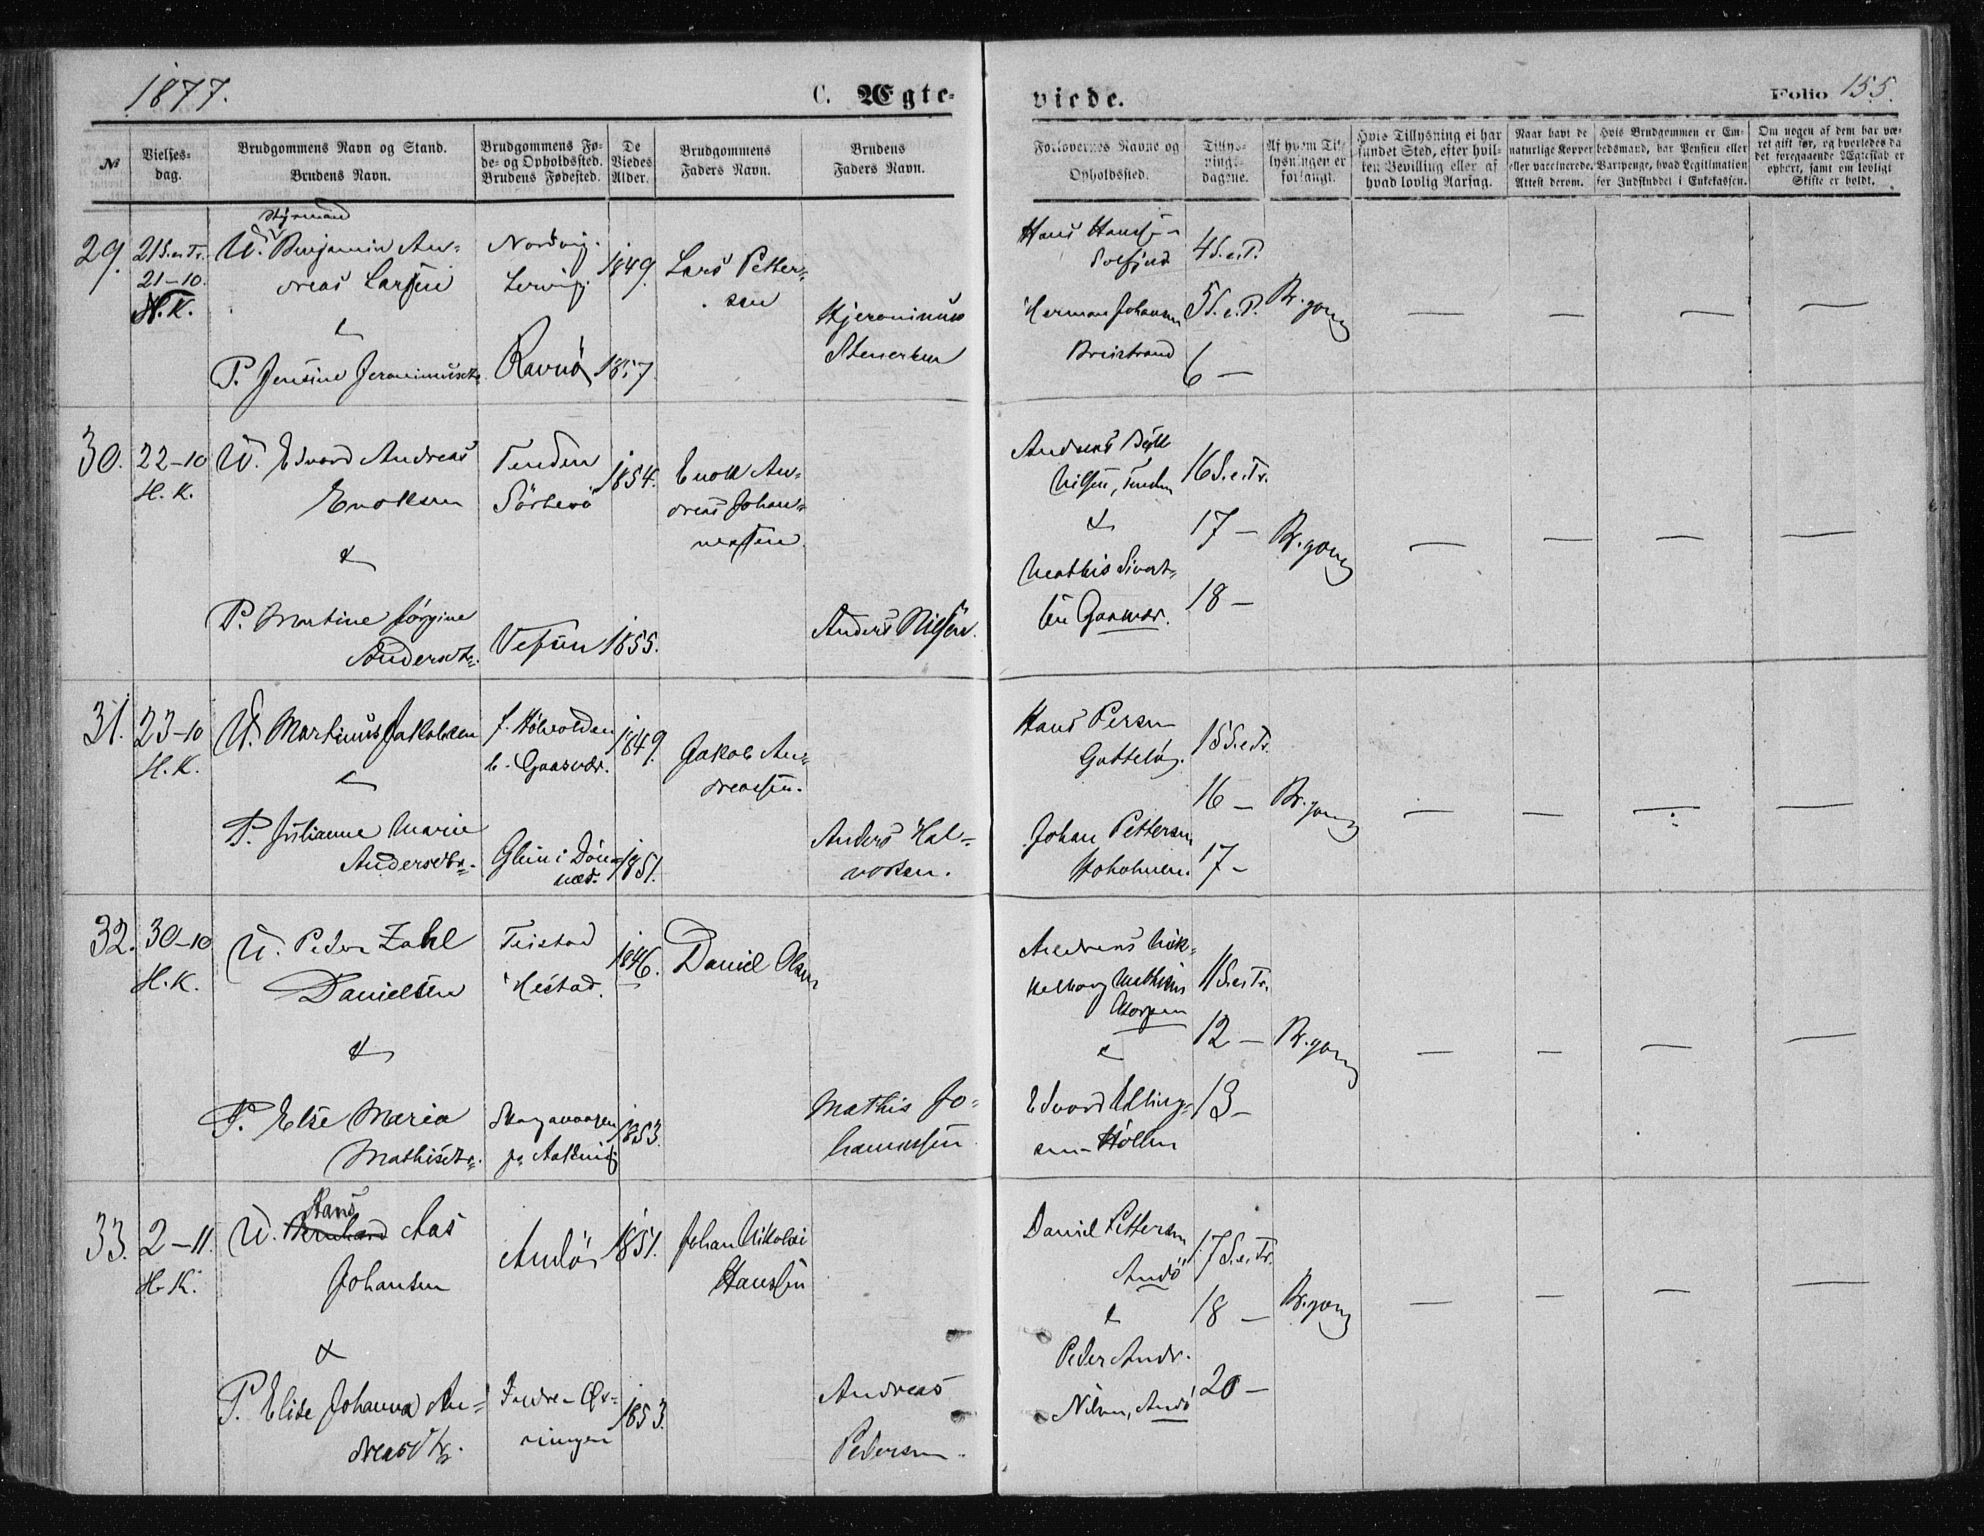 1877.
C. Ægte-
viede.
Folio 155.
№
Vielses-
dag.
Brudgommens Navn og Stand.
Brudens Navn.
Brudgommens Fø-
de- og Opholdssted.
Brudens Fødested.
De
Viedes
Alder.
Brudgommens
Faders Navn.
Brudens
Faders Navn.
Forlovernes Navne og
Opholdssted.
Tillys-
nings-
dagene.
Af hvem Til-
lysningen er
forlangt.
Hvis Tillysning ei har
fundet Sted, efter hvil-
ken Bevilling eller af
hvad lovlig Aarsag.
Naar havt de
naturlige Kopper
eller vaccinerede.
Attest derom.
Hvis Brudgommen er Em-
bedsmand, har Pension eller
Vartpenge, hvad Legitimation
for Indskuddet i Enkekassen.
Om nogen af dem har væ-
ret gift før, og hvorledes da
det foregaaende Ægteskab er
ophørt, samt om lovligt
Skifte er holdt.
29.
21 S. e. Tr.
21-10.
N. K.
Styrmand
U. Benjamin An-
dreas Larsen
&
P. Jensine Jeronimusdtr.
Nordvig.
Ravnö
1849.
1857.
Lars Petter-
sen
Hjeronimus
Hans
4 S. e. P.
Herman Johansen
5 S. e. P.
Breistrand
6 —
Br.gom
30.
22-10
H. K.
U. Edvard Andreas
Enoksen
&
P. Martine Jørgine
Andersdtr.
Tenden
Vefsen
1854.
1855.
Enok An-
dreas Johan-
nessen.
Anders Nilsen.
Andreas
Nilsen, Tenden
&
Mathis Sivert-
sen Gaasvær.
16 S. e. Tr.
17 —
18 —
Br.gom
31.
23-10
H. K.
U. Martinus Jakobsen
&
P. Julianne Marie
Andersdtr.
b. Gaasvær.
Glein i Døn-
næs.
1849.
1851.
Jakob An-
dreassen.
Anders Hal-
vorsen.
Hans Persen
Johan Pettersen
Hoholmen.
15 S. e. Tr.
16 —
17 —
Br.gom
32.
30-10
H. K.
U. Peder Zahl
Danielsen
&
P. Else Maria
Mathisdtr.
Hestad.
1846.
1853.
Daniel Olsen
Mathis Jo-
hannessen.
Andreas Mik-
&
Edvard Elling-
sen
11 S. e. Tr.
12 —
13 —
Br.gom
33.
2-11.
H. K.
Hans
U. Bernhard Aas
Johansen
&
P. Elise Johanna An-
dreasdtr.
Andö
Indre Øx-
ningen
1851.
1853.
Johan Nikolai
Hanssen
Andreas
Pedersen.
Daniel Pettersen
Andö
&
Peder Andr.
Nilsen, Andö
17 S. e. Tr.
18 —
20 —
Br.gom